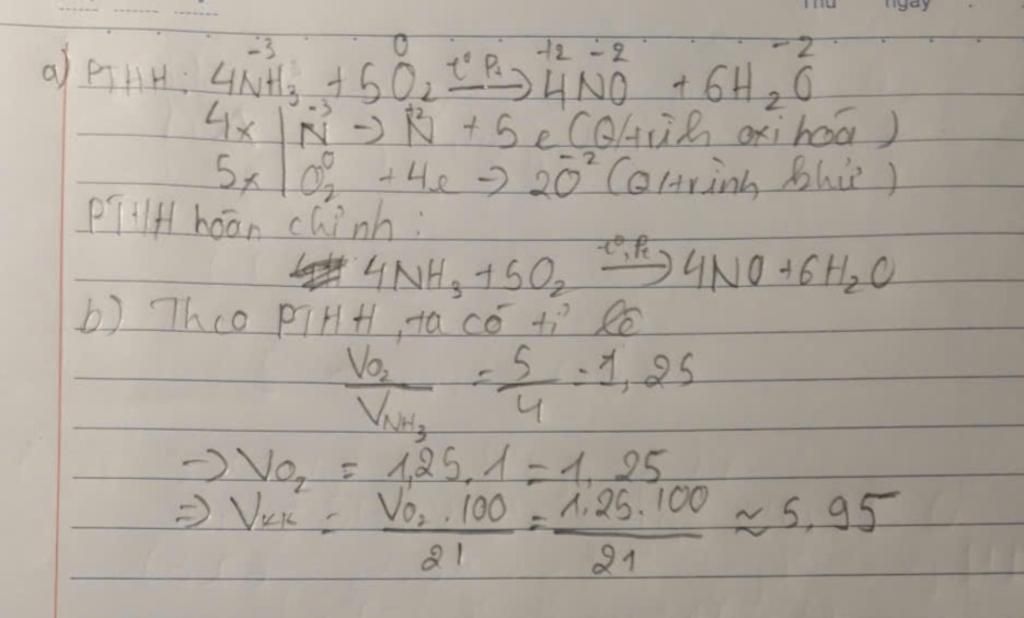 Thứ ngày
-3 0 +2 -2 -2
a) PTHH: 4NH₃ + 5O₂ —t° Pt→ 4NO + 6H₂O
4x | N⁻³ → N⁺² + 5e (Q/trình oxi hoá)
5x | O₂⁰ + 4e → 2O⁻² (Q/trình khử)
PTHH hoàn chỉnh:
4NH₃ + 5O₂ —t°, Pt→ 4NO + 6H₂O
b) Theo PTHH, ta có tỉ lệ
VO₂/VNH₃ = 5/4 = 1,25
→ VO₂ = 1,25.1 = 1,25
⇒ Vkk = VO₂.100/21 = 1.25.100/21 ≈ 5,95